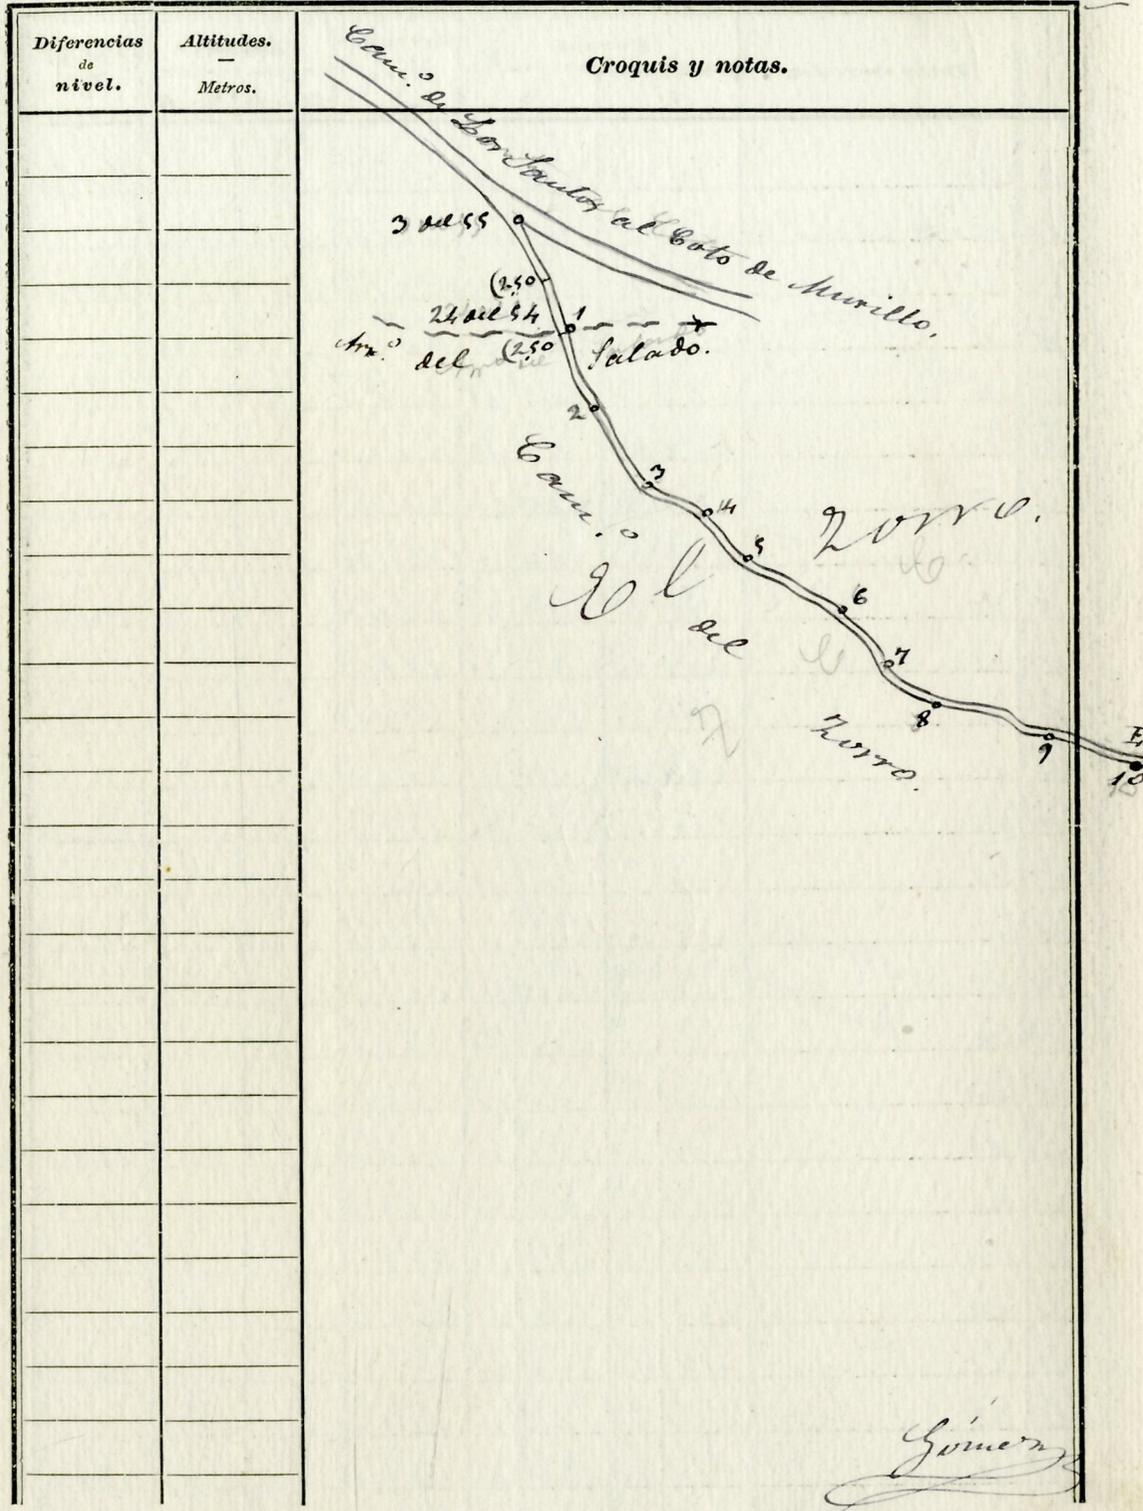 Diferencias
de
nivel.
Altitudes.
—
Metros.
Croquis y notas.
Cam.º de Los Santos al Coto de Murillo.
3 del 55
(2,50
24 del 54
1
Arr.º del Salado.
(2,50
2
3
4
5
6
7
8
9
10
E
Cam.º del Zorro.
El Zorro.
Gómez